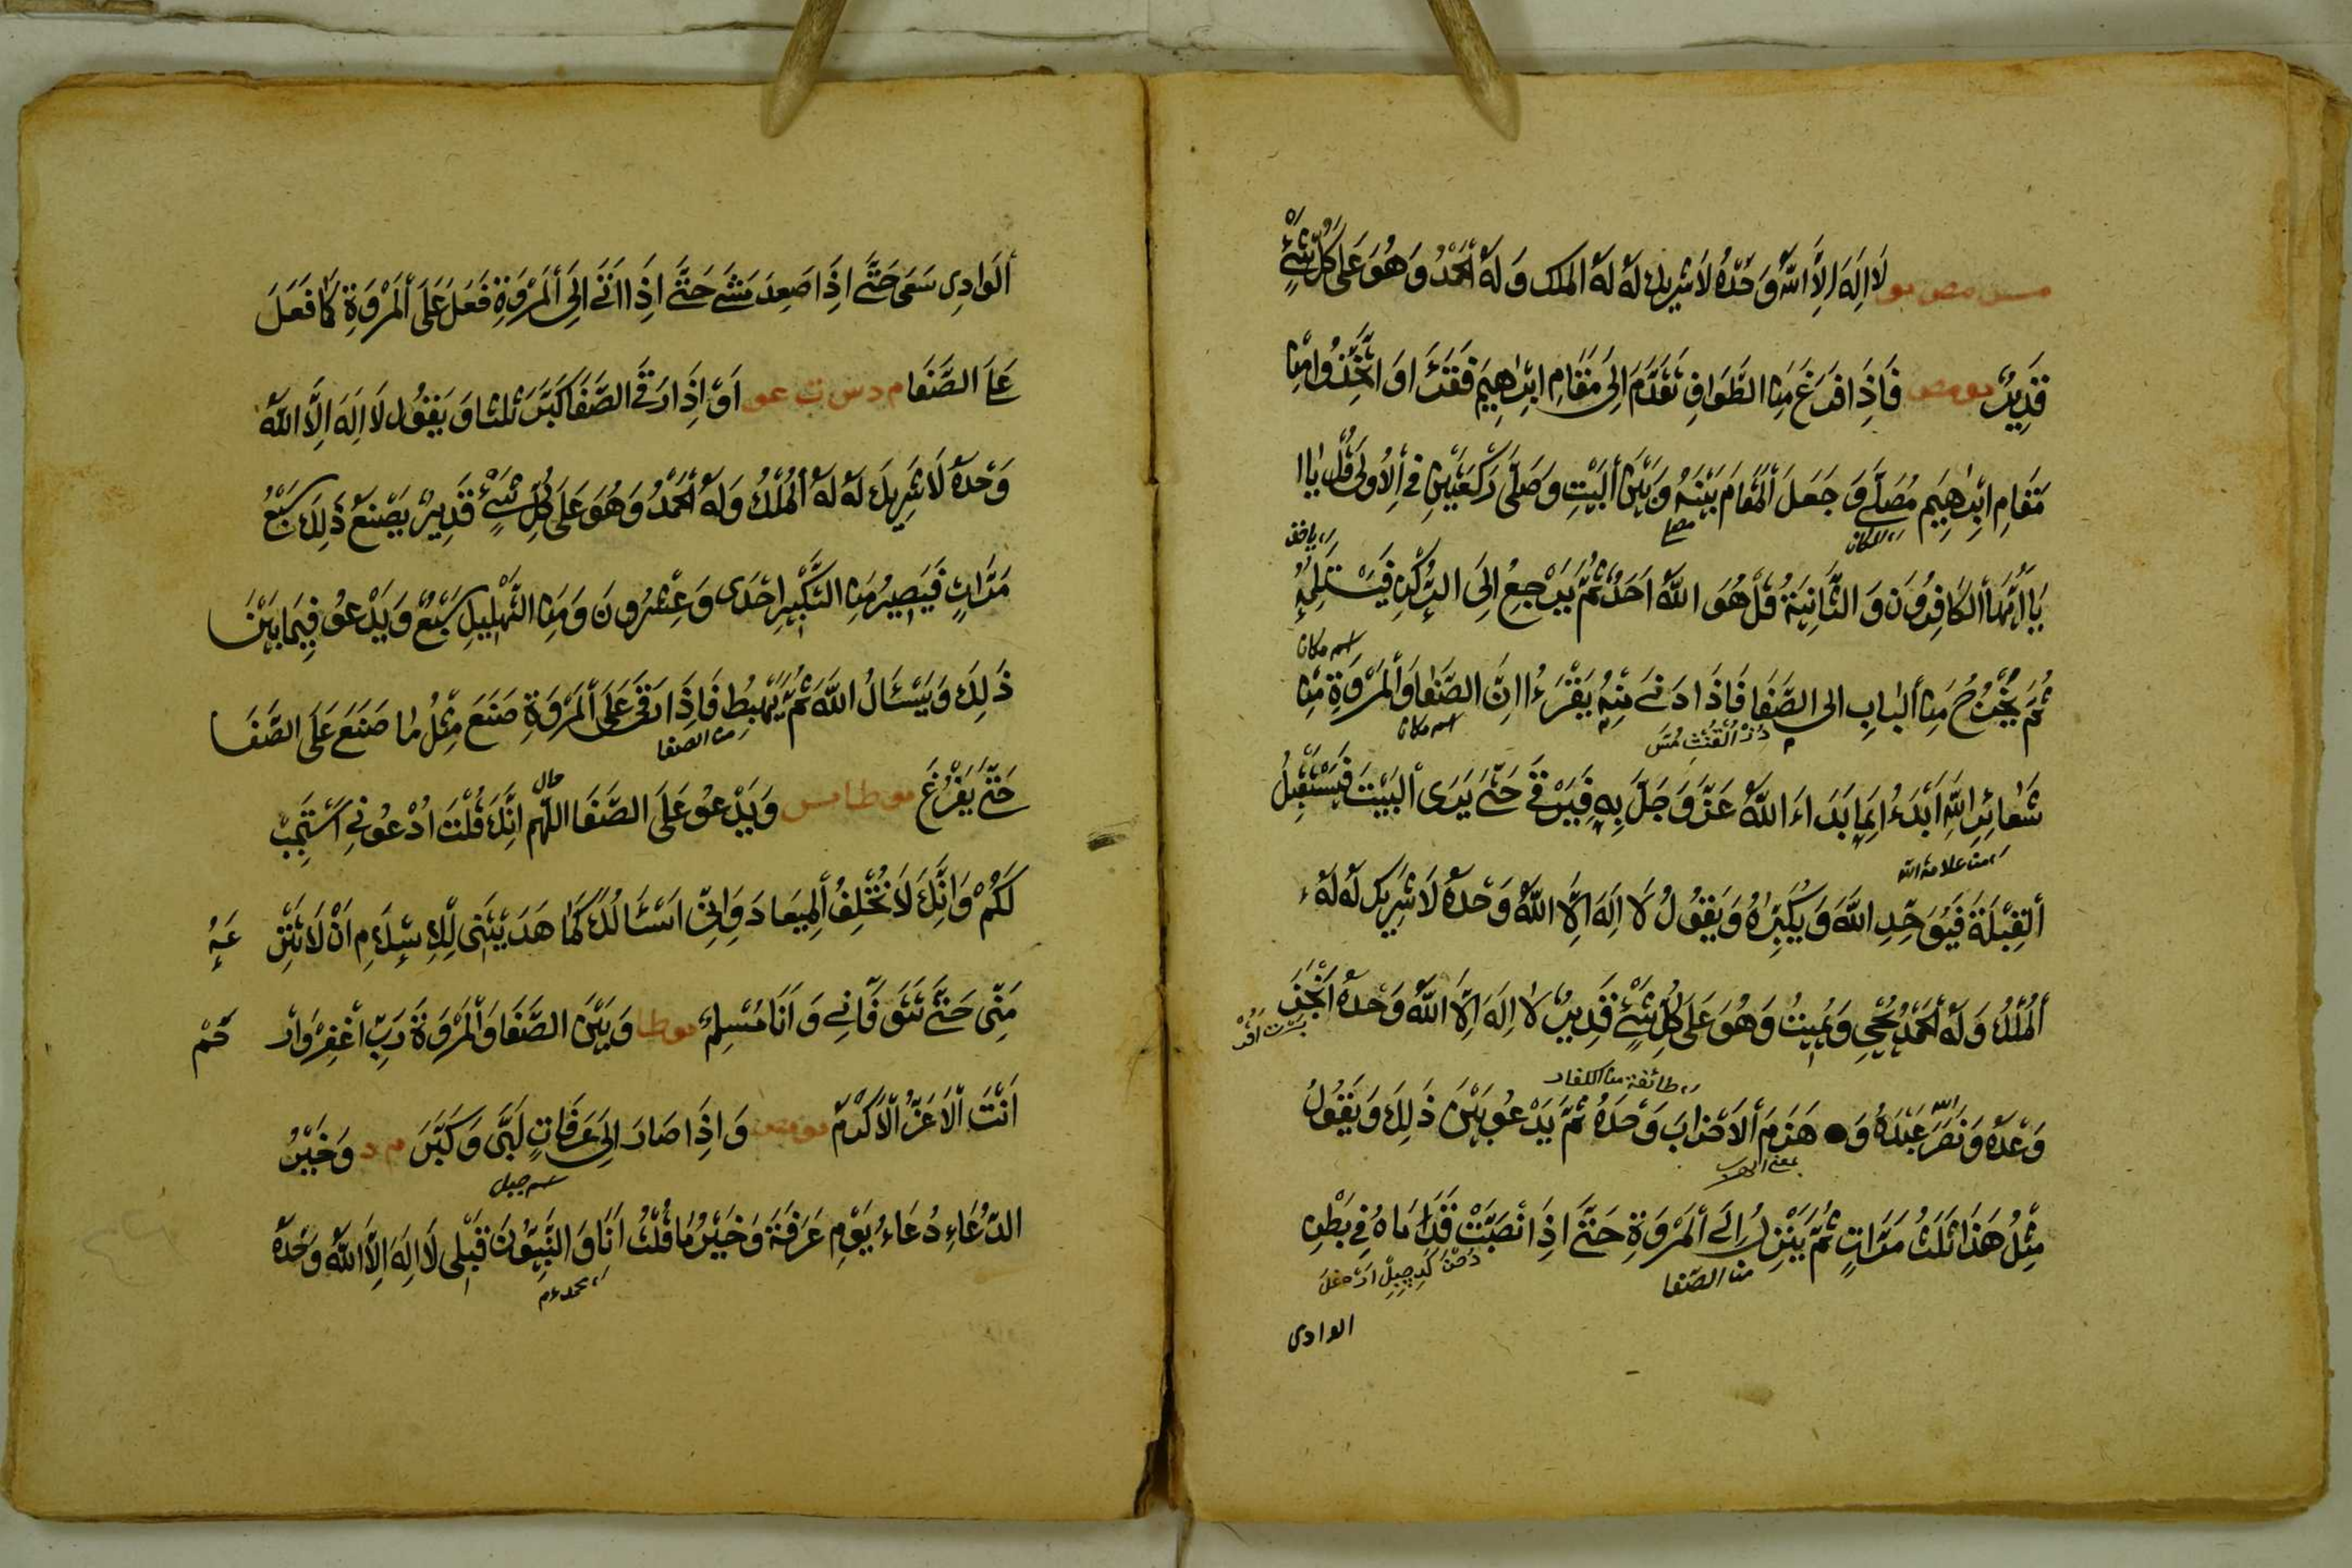 مس مص مو لَا اِلٰهَ اِلَّا اللّٰهُ وَحْدَهُ لَا شَرِيكَ لَهُ لَهُ الْمُلْكُ وَلَهُ الْحَمْدُ وَهُوَ عَلَى كُلِّ شَيْءٍ
قَدِيرٌ مو مص فَاِذَا فَرَغَ مِنَ الطَّوَافِ تَقَدَّمَ اِلَى مَقَامِ اِبْرَاهِيمَ فَقَرَأَ وَاتَّخِذُوا مِنْ
مَقَامِ اِبْرَاهِيمَ مُصَلًّى وَ جَعَلَ الْمَقَامَ بَيْنَهُ وَبَيْنَ الْبَيْتِ وَصَلَّى رَكْعَتَيْنِ فِي الْأُولَى قُلْ يَا ا
يَا اَيُّهَا الْكَافِرُونَ وَ الثَّانِيَةِ قُلْ هُوَ اللّٰهُ اَحَدٌ ثُمَّ يَرْجِعُ اِلَى الرُّكْنِ فَيَسْتَلِمُهُ
اسم مكان
ثُمَّ يَخْرُجُ مِنَ الْبَابِ اِلى الصَّفَا فَاِذَا دَنَى مِنْهُ يَقْرَءُ اِنَّ الصَّفَا وَالْمَرْوَةَ مِنْ
اسم مكان
شَعَائِرِ اللّٰهِ اَبْدَءُ بِمَا بَدَاءَ اللّٰهُ عَزَّ وَجَلَّ بِهِ فَيَرْقَى حَتَّى يَرَى الْبَيْتَ فَيَسْتَقْبِلُ
من علامة الله
الْقِبْلَةَ فَيُوَحِّدِ اللّٰهَ وَيُكَبِّرُهُ وَيَقُولُ لَا اِلَهَ اِلَّا اللّٰهُ وَحْدَهُ لَا شَرِيكَ لَهُ لَهُ
الْمُلْكُ وَلَهُ الْحَمْدُ يُحْيِي وَيُمِيتُ وَهُوَ عَلَى كُلِّ شَيْءٍ قَدِيرٌ لَا اِلَهَ اِلَّا اللّٰهُ وَحْدَهُ اَنْجَزَ
طائفة من الكفار
وَعْدَهُ وَنَصَرَ عَبْدَهُ وَ هَزَمَ الْاَحْزَابَ وَحْدَهُ ثُمَّ يَدْعُو بَيْنَ ذَلِكَ وَيَقُولُ
مِثْلَ هَذَا ثَلَثَ مَرَّاتٍ ثُمَّ يَنْزِلُ اِلَى الْمَرْوَةِ حَتَّى اِذَا نْصَبَّتْ قَدَمَاهُ فِي بَطْنِ
من الصفا
الوادى
الْوَادِى سَعَى حَتَّى اِذَا صَعِدَ مَشَى حَتَّى اِذَا اَتَى اِلَى الْمَرْوَةِ فَعَلَ عَلَى الْمَرْوَةِ كَمَا فَعَلَ
عَلَى الصَّفَا م د س ق عو اَوْ اِذَا رَقَى الصَّفَا كَبَّرَ ثَلثًا وَ يَقُولُ لَا اِلَهَ اِلَّا اللّٰهُ
وَحْدَهُ لَا شَرِيكَ لَهُ لَهُ الْمُلْكُ وَلَهُ الْحَمْدُ وَهُوَ عَلَى كُلِّ شَيْءٍ قَدِيرٌ يَصْنَعُ ذَلِكَ سَبْعَ
مَرَّاتٍ فَيَصِيرُ مِنَ التَّكْبِيرِ اِحْدَى وَعِشْرُونَ وَ مِنَ التَّهْلِيلِ سَبْعٌ وَيَدْعُو فِيمَا بَيْنَ
ذَلِكَ وَيَسْئَالُ اللّٰهَ ثُمَّ يَهْبِطُ فَاِذَا رَقَى عَلَى الْمَرْوَةِ صَنَعَ مِثْلُ مَا صَنَعَ عَلَى الصَّفَا
من الصفا
حَتَّى يَفْرُغَ مو طا مس وَيَدْعُو عَلَى الصَّفَا اللّٰهُمَّ اِنَّكَ قُلْتَ اُدْعُونِي اَسْتَجِبْ
لَكُمْ وَاِنَّكَ لَا تُخْلِفُ الْمِيعَادَ وَاِنِّي اَسْئَالُكَ كَمَا هَدَيْتَنِى لِلْاِسْلَامِ اَنْ لَا تَنْزِ عَهُ
مِنِّى حَتَّى تَتَوَفَّانِي وَ اَنَا مُسْلِمٌ مو طا وَبَيْنَ الصَّفَا وَالْمَرْوَةَ رَبِّ اغْفِرْ وَارْ حَمْ
اَنْتَ الْاَعَزُّ الْاَكْرَمُ مو مص وَاِذَا صَارَ اِلَى عَرَفَاتٍ لَبَّى وَكَبَّرَ م د وَخَيْرُ
اسم جبل
الدُّعَاءِ دُعَاءُ يَوْمِ عَرَفَةَ وَخَيْرُ مَا قُلْتُ اَنَا وَالنَّبِيُّونَ قَبْلِى لَا اِلَهَ اِلَّا اللّٰهُ وَحْدَهُ